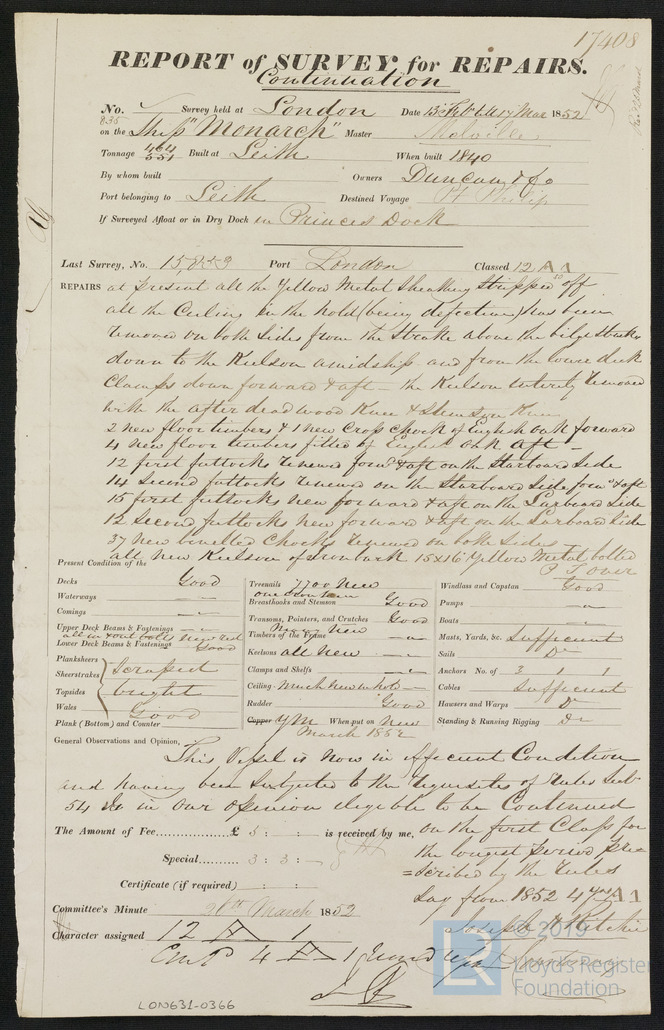 17408
REPORT of SURVEY for REPAIRS.
Continuation
No. Survey held at London Date 13 Feb till 17 Mar 1852
835
on the Ship "Monarch" Master Melville
Tonnage 464 551 Built at Leith When built 1840
By whom built Owners Duncan & Co
Port belonging to Leith Destined Voyage Pt Philip
If Surveyed Afloat or in Dry Dock in Princes Dock
Last Survey, No. 15,853 Port London Classed 12 A 1
REPAIRS at present all the Yellow Metal Sheathing Stripped off
all the Ceiling in the hold (being defective) has been
removed on both sides from the Strake above the bilge strakes
down to the Keelson amidship and from the lower deck
Clamps down forward & aft - the Keelson entirely removed
with the after deadwood Knee & Stemson Knee
2 new floor timbers & 1 new Cross Chock of English oak forward
4 new floor timbers fitted of English oak aft -
12 first futtocks renewed forwd & aft on the Starboard side
14 second futtocks renewed on the Starboard Side forwd & aft
15 first futtocks new forward & aft on the Larboard Side
12 second futtocks new forward & aft on the Larboard Side
37 new bevelled Chocks renewed on both sides
all new Keelson of Ironbark 15 x 16 Yellow Metal bolted
P T over
Present Condition of the
Decks Good
Waterways
Comings
Upper Deck Beams & Fastenings
all in & out bolts renewed
Lower Deck Beams & Fastenings Good
Planksheers
Sheerstrakes
Topsides
Wales
Scraped
bright
Good
Plank (Bottom) and Counter
Treenails 7700 New
Breasthooks and Stemson Good
Transoms, Pointers, and Crutches Good
Many New
Timbers of the Frame
Keelsons all New
Clamps and Shelfs
Ceiling Much New in hold
Rudder Good
Copper YM When put on New
March 1852
Windlass and Capstan Good
Pumps
Boats
Masts, Yards, &c. Sufficient
Sails Do
Anchors No. of 3 1
Cables Sufficient
Hawsers and Warps Do
Standing & Running Rigging Do
General Observations and Opinion,
This Vessel is now in efficient Condition
and having been Subjected to the requisites of Rules Sub
54 is in Our Opinion eligible to be Continued
on the first Class for
the longest period pre
=scribed by the Rules
Say from 1852 4 yrs A 1
The Amount of Fee £ 5 : : is received by me,
Special 3 : 3 : -
Certificate (if required) : :
Committee's Minute 26th March 1852
Character assigned 12 A 1
Contd 4 A 1
Joseph H Ritchie
LON631-0366
LR
© 2019
Lloyd's Register
Foundation